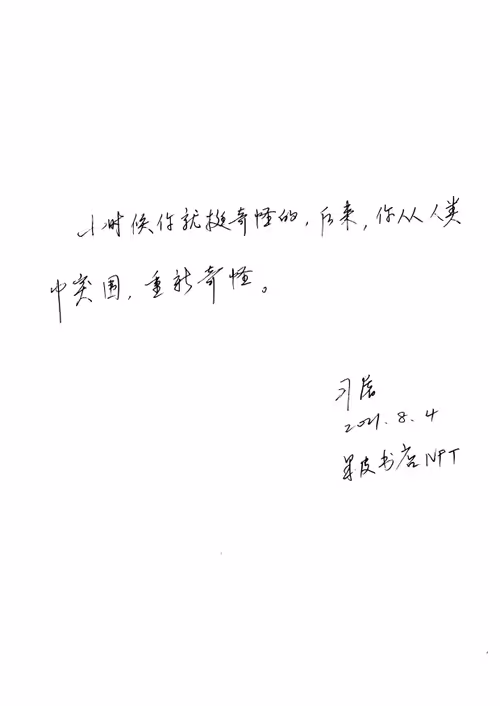 小时候你就挺奇怪的，后来，你从人类
中突围，重新奇怪。
习若
2021.8.4
果皮书店NPT